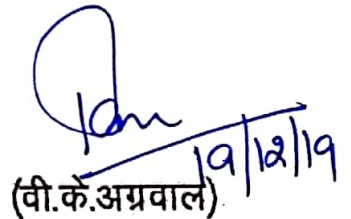 19/12/19
(वी.के.अग्रवाल)